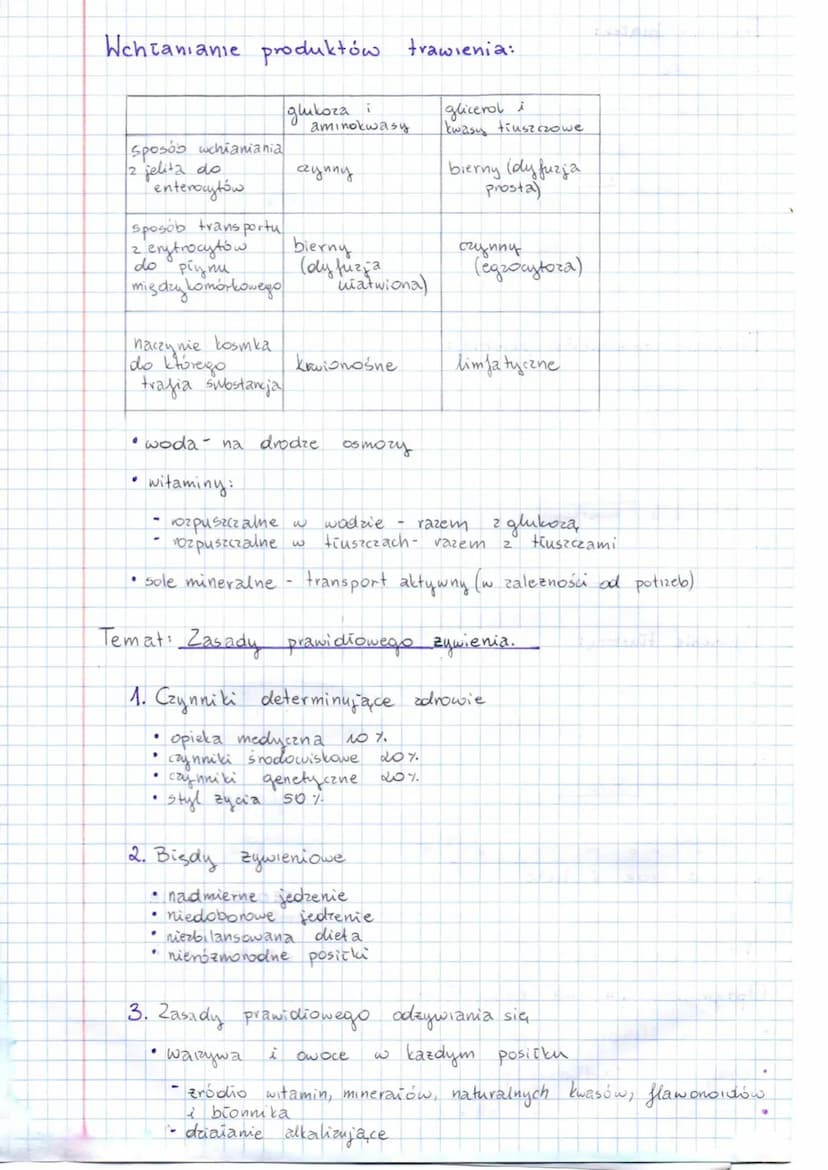 Wchłanianie produktów trawienia:
glukoza i aminokwasy
glicerol i kwasy tłuszczowe
sposób wchłaniania z jelita do enterocytów
czynny
bierny (dyfuzja prosta)
sposób transportu z erytrocytów do płynu międzykomórkowego
bierny (dyfuzja ułatwiona)
czynny (egzocytoza)
naczynie kosmka do którego trafia substancja
krwionośne
limfatyczne
• woda - na drodze osmozy
• witaminy:
- rozpuszczalne w wodzie - razem z glukozą
- rozpuszczalne w tłuszczach - razem z tłuszczami
• sole mineralne - transport aktywny (w zależności od potrzeb)
Temat: Zasady prawidłowego żywienia.
1. Czynniki determinujące zdrowie
• opieka medyczna 10%
• czynniki środowiskowe 20%
• czynniki genetyczne 20%
• styl życia 50%
2. Błędy żywieniowe
• nadmierne jedzenie
• niedoborowe jedzenie
• niezbilansowana dieta
• nieróżnorodne posiłki
3. Zasady prawidłowego odżywiania się
• warzywa i owoce w każdym posiłku
- źródło witamin, minerałów, naturalnych kwasów, flawonoidów
i błonnika
- działanie alkalizujące